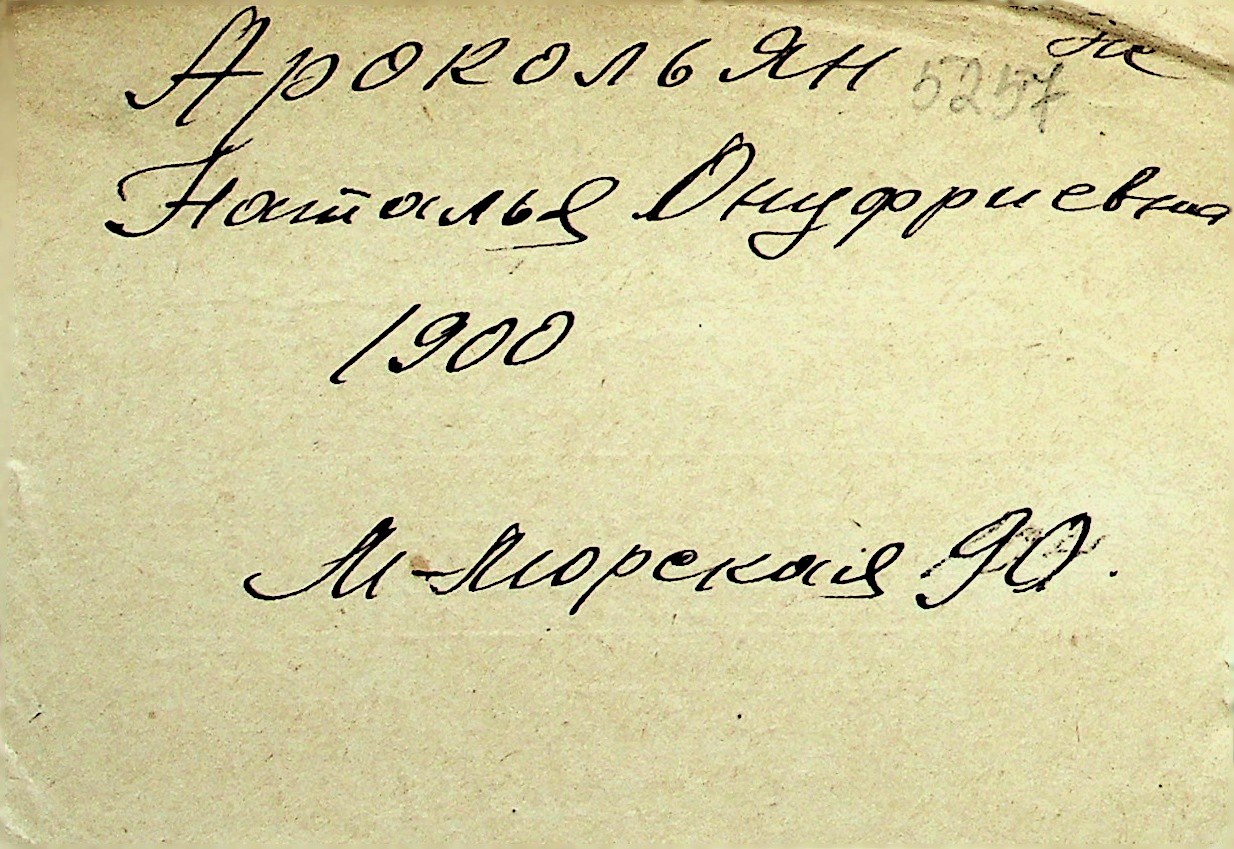 Арокольян 5257
Наталья Онуфриевна
1900
М-Морская 90.